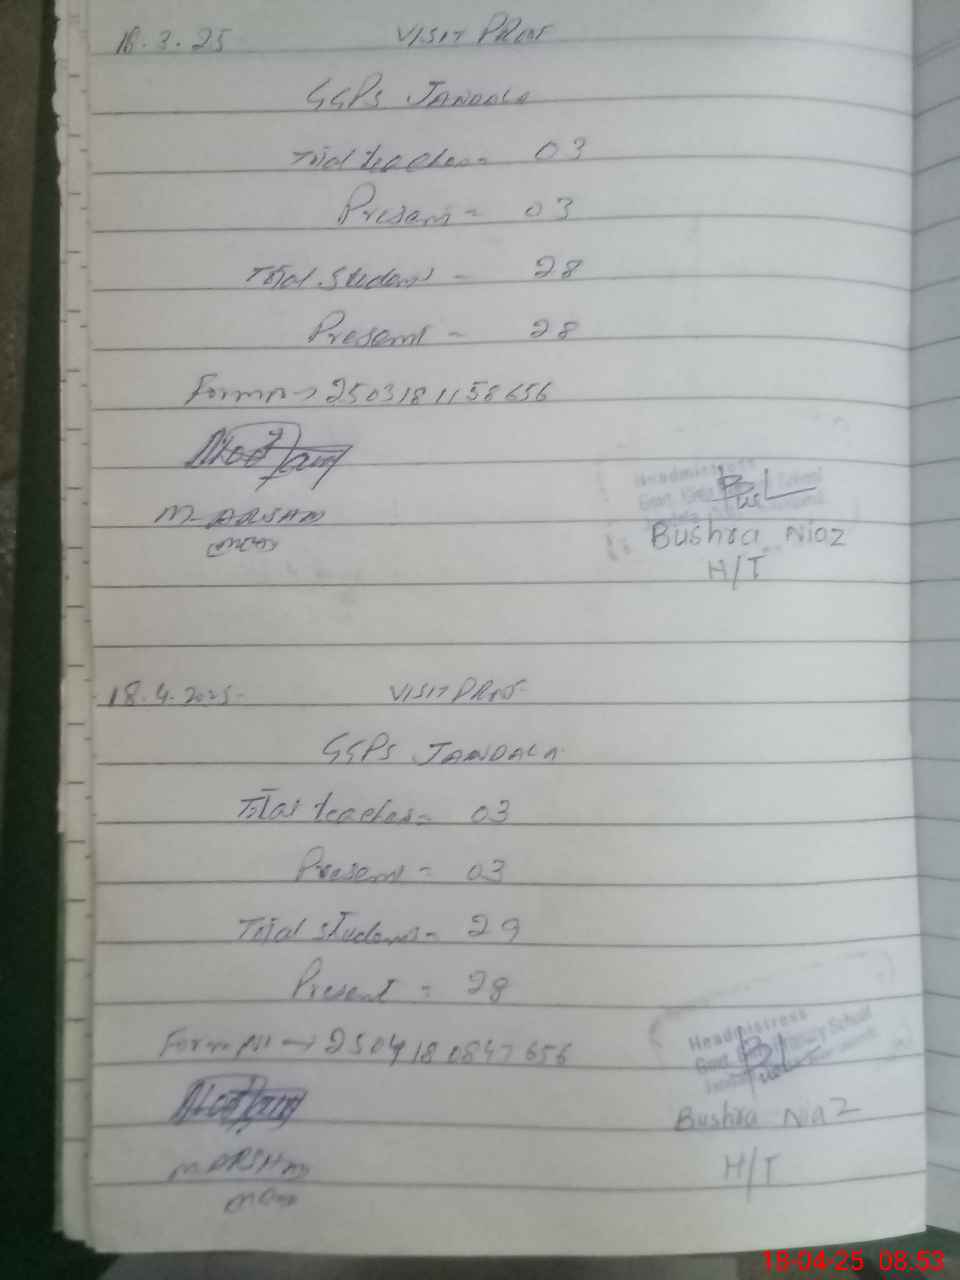 18.3.25 VISIT PROOF
GGPS JANDALA
Total teachers = 03
Present = 03
Total Students = 28
Present = 28
Form no → 2503181158656
M. ARSHAD
Headmistress
Govt. School
Bushra Niaz
H/T
18.4.2025 VISIT PROOF
GGPS JANDALA
Total teachers = 03
Present = 03
Total students = 29
Present = 28
Form no → 2504180847656
M. ARSHAD
Headmistress
Govt. School
Bushra Niaz
H/T
18-04-25 08:53